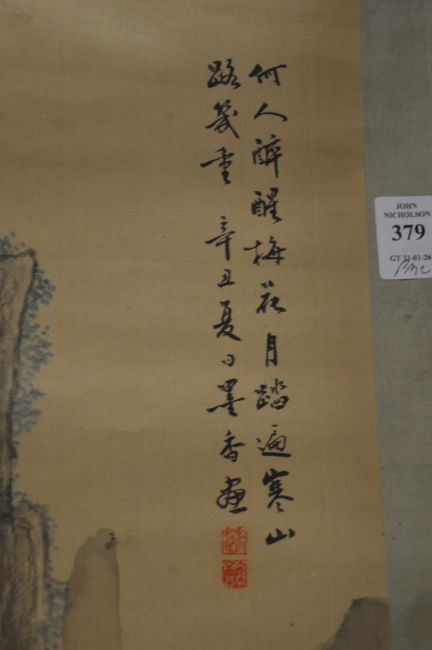 何人醉醒梅花月踏遍寒山
路幾重 辛丑夏日墨香画
JOHN
NICHOLSON
379
GT 31-01-26